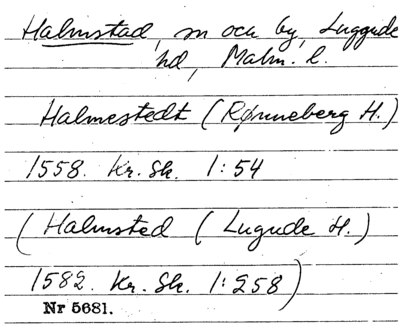 Halmstad, sn och by, Luggude
hd, Malm. l.
Halmestedt (Rønneberg H.)
1558. Kr. Sk. 1:54
(Halmsted (Lugude H.)
1582. Kr. Sk. 1:258)
Nr 5681.